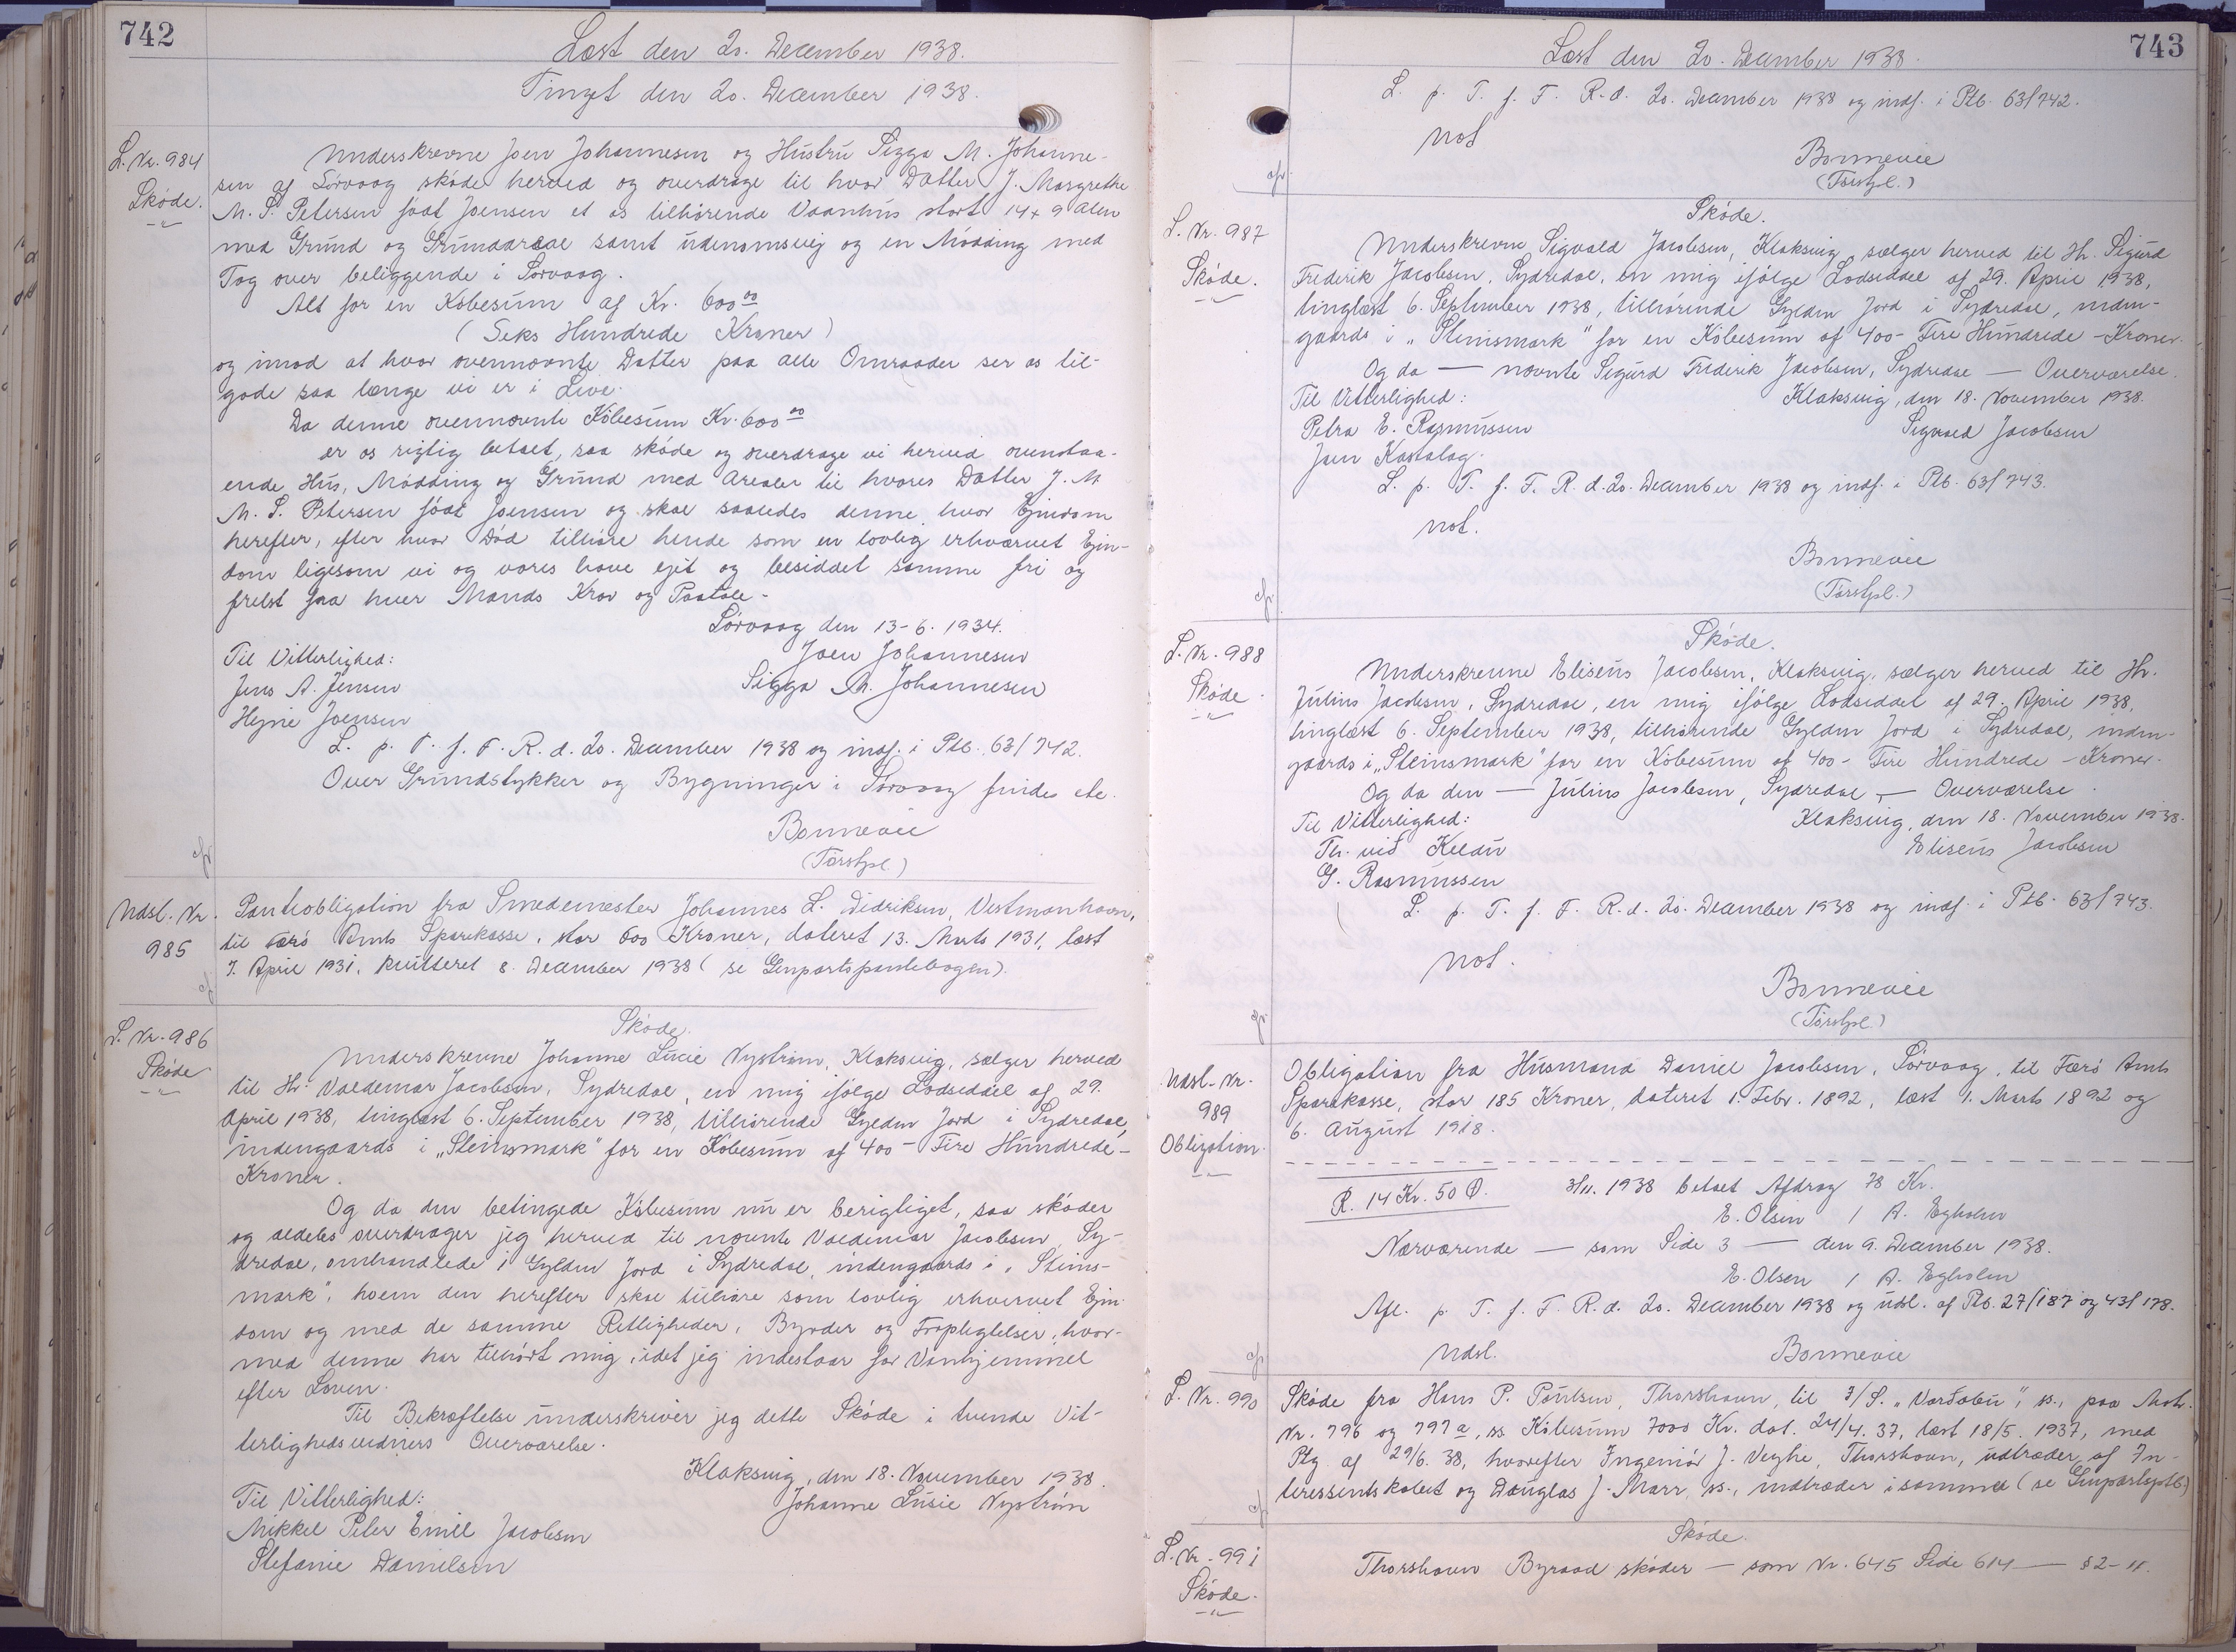 742
Læst den 20. December 1938.
Tinget den 20. December 1938.
L. Nr. 984
Skøde.
Underskrevne Joen Johannesen og Hustru Sigga M. Johanne-
sen af Sørvaag skøde herved og overdrage til hvor Datter J. Margrethe
M. S. Petersen født Joensen et os tilhørende Vaanhus stort 14 x 9 Alen
med Grund og Grundareal samt udenomsvej og en Mødding med
Tag over beliggende i Sørvaag.
Alt for en Købesum af Kr. 600 00
(Seks Hundrede Kroner)
og imod at hvor ovennævnte Datter paa alle Omraader ser os til-
gode saa længe vi er i Live.
Da denne ovennævnte Købesum Kr. 600 00
er os rigtig betalt, saa skøde og overdrage vi herved ovenstaa-
ende Hus, Mødding og Grund med Arealer til hvores Datter J. M
M. S. Petersen født Joensen og skal saaledes denne hvor Ejendom
herefter, efter hvor Død tilhøre hende som en lovlig erhværvet Ejen-
dom ligesom vi og vores have ejet og besiddet samme fri og
frelst fra hver Mands Krav og Paatale.
Sørvaag den 13-6. 1934.
Til Vitterlighed:
Joen Johannesen
Jens A. Jensen
Sigga M. Johannesen
Hejne Joensen
L. p. T. f. F. R. d. 20. December 1938 og indf. i Ptb. 63/742.
Over Grundstykker og Bygninger i Sørvaag findes etc.
Bonnevie
(Førstpl.)
Udsl. Nr.
985
Panteobligation fra Smedemester Johannes L. Didriksen, Vestmanhavn,
til Færø Amts Sparekasse, stor 600 Kroner, dateret 13. Marts 1931, læst
7. April 1931, kvitteret 8. December 1938 (se Genpartspantebogen).
L. Nr. 986
Skøde
Skøde.
Underskrevne Johanne Lucie Nystrøm, Klaksvig, sælger herved
til Hr. Valdemar Jacobsen, Sydredal, en mig ifølge Lodseddel af 29.
April 1938, tinglæst 6. September 1938, tilhørende Gylden Jord i Sydredal,
indengaards i „Steinsmark" for en Købesum af 400 - Fire Hundrede -
Kroner.
Og da den betingede Købesum nu er berigtiget, saa skøder
og aldeles overdrager jeg herved til nævnte Valdemar Jacobsen, Sy-
dredal, omhandlede 1 Gylden Jord i Sydredal, indengaards i „Steins-
mark", hvem den herefter skal tilhøre som lovlig erhvervet Ejen-
dom og med de samme Rettigheder, Byrder og Forpligtelser, hvor-
med denne har tilhørt mig, idet jeg indestaar for Vanhjemmel
efter Loven.
Til Bekræftelse underskriver jeg dette Skøde i tvende Vit-
terlighedsvidners Overværelse.
Klaksvig, den 18. November 1938.
Til Vitterlighed:
Johanne Lusie Nystrøm
Mikkel Peter Emil Jacobsen
Stefanie Danielsen
743
Læst den 20. December 1938.
L. p. T. f. F. R. d. 20. December 1938 og indf. i Ptb. 63/742.
Not
Bonnevie
(Førstpl.)
L. Nr. 987
Skøde.
Skøde.
Underskrevne Sigvald Jacobsen, Klaksvig, sælger herved til Hr. Sigurd
Frederik Jacobsen, Sydredal, en mig ifølge Lodseddel af 29. April 1938,
tinglæst 6. September 1938, tilhørende Gylden Jord i Sydredal, inden-
gaards i „Steinsmark" for en Købesum af 400 - Fire Hundrede - Kroner.
Og da — nævnte Sigurd Frederik Jacobsen, Sydredal — Overværelse.
Til Vitterlighed:
Klaksvig, den 18. November 1938.
Petra E. Rasmussen
Sigvald Jacobsen
Jens Kastalag.
L. p. T. f. F. R. d. 20. December 1938 og indf. i Ptb. 63/743.
Not.
Bonnevie
(Førstpl.)
L. Nr. 988
Skøde.
Skøde.
Underskrevne Eliseus Jacobsen, Klaksvig, sælger herved til Hr.
Julius Jacobsen, Sydredal, en mig ifølge Lodseddel af 29. April 1938,
tinglæst 6. September 1938, tilhørende Gylden Jord i Sydredal, inden-
gaards i „Steinsmark" for en Købesum af 400 - Fire Hundrede - Kroner.
Og da den — Julius Jacobsen, Sydredal, — Overværelse.
Til Vitterlighed:
Klaksvig, den 18. November 1938.
Th. við Keldu
Eliseus Jacobsen
G. Rasmussen
L. p. T. f. F. R. d. 20. December 1938 og indf. i Ptb. 63/743.
Not.
Bonnevie
(Førstpl.)
Udsl. Nr.
989
Obligation
Obligation fra Husmand Daniel Jacobsen, Sørvaag, til Færø Amts
Sparekasse, stor 185 Kroner, dateret 1. Febr. 1892, læst 1. Marts 1892 og
6. August 1918.
R. 14 Kr. 50 Ø.
3/11. 1938 betalt Afdrag 78 Kr.
E. Olsen / A. Egholm
Nærværende — som Side 3 — den 9. December 1938.
E. Olsen / A. Egholm
Afl. p. T. f. F. R. d. 20. December 1938 og udsl. af Ptb. 27/187 og 43/178.
Udsl.
Bonnevie
L. Nr. 990
Skøde fra Hans P. Poulsen, Thorshavn, til I/S. „Varðabu", ss., paa Matr.
Nr. 796 og 797 a, ss. Købesum 7000 Kr. dat. 24/4. 37, læst 18/5. 1937, med
Ptg. af 29/6. 38, hvorefter Ingeniør J. Veyhe, Thorshavn, udtræder af In-
teressentskabet og Douglas J. Marr, ss., indtræder i samme (se Genpartsptb.)
L. Nr. 991
Skøde.
Skøde.
Thorshavn Byraad skøder — som Nr. 645 Side 614 — § 2-11.